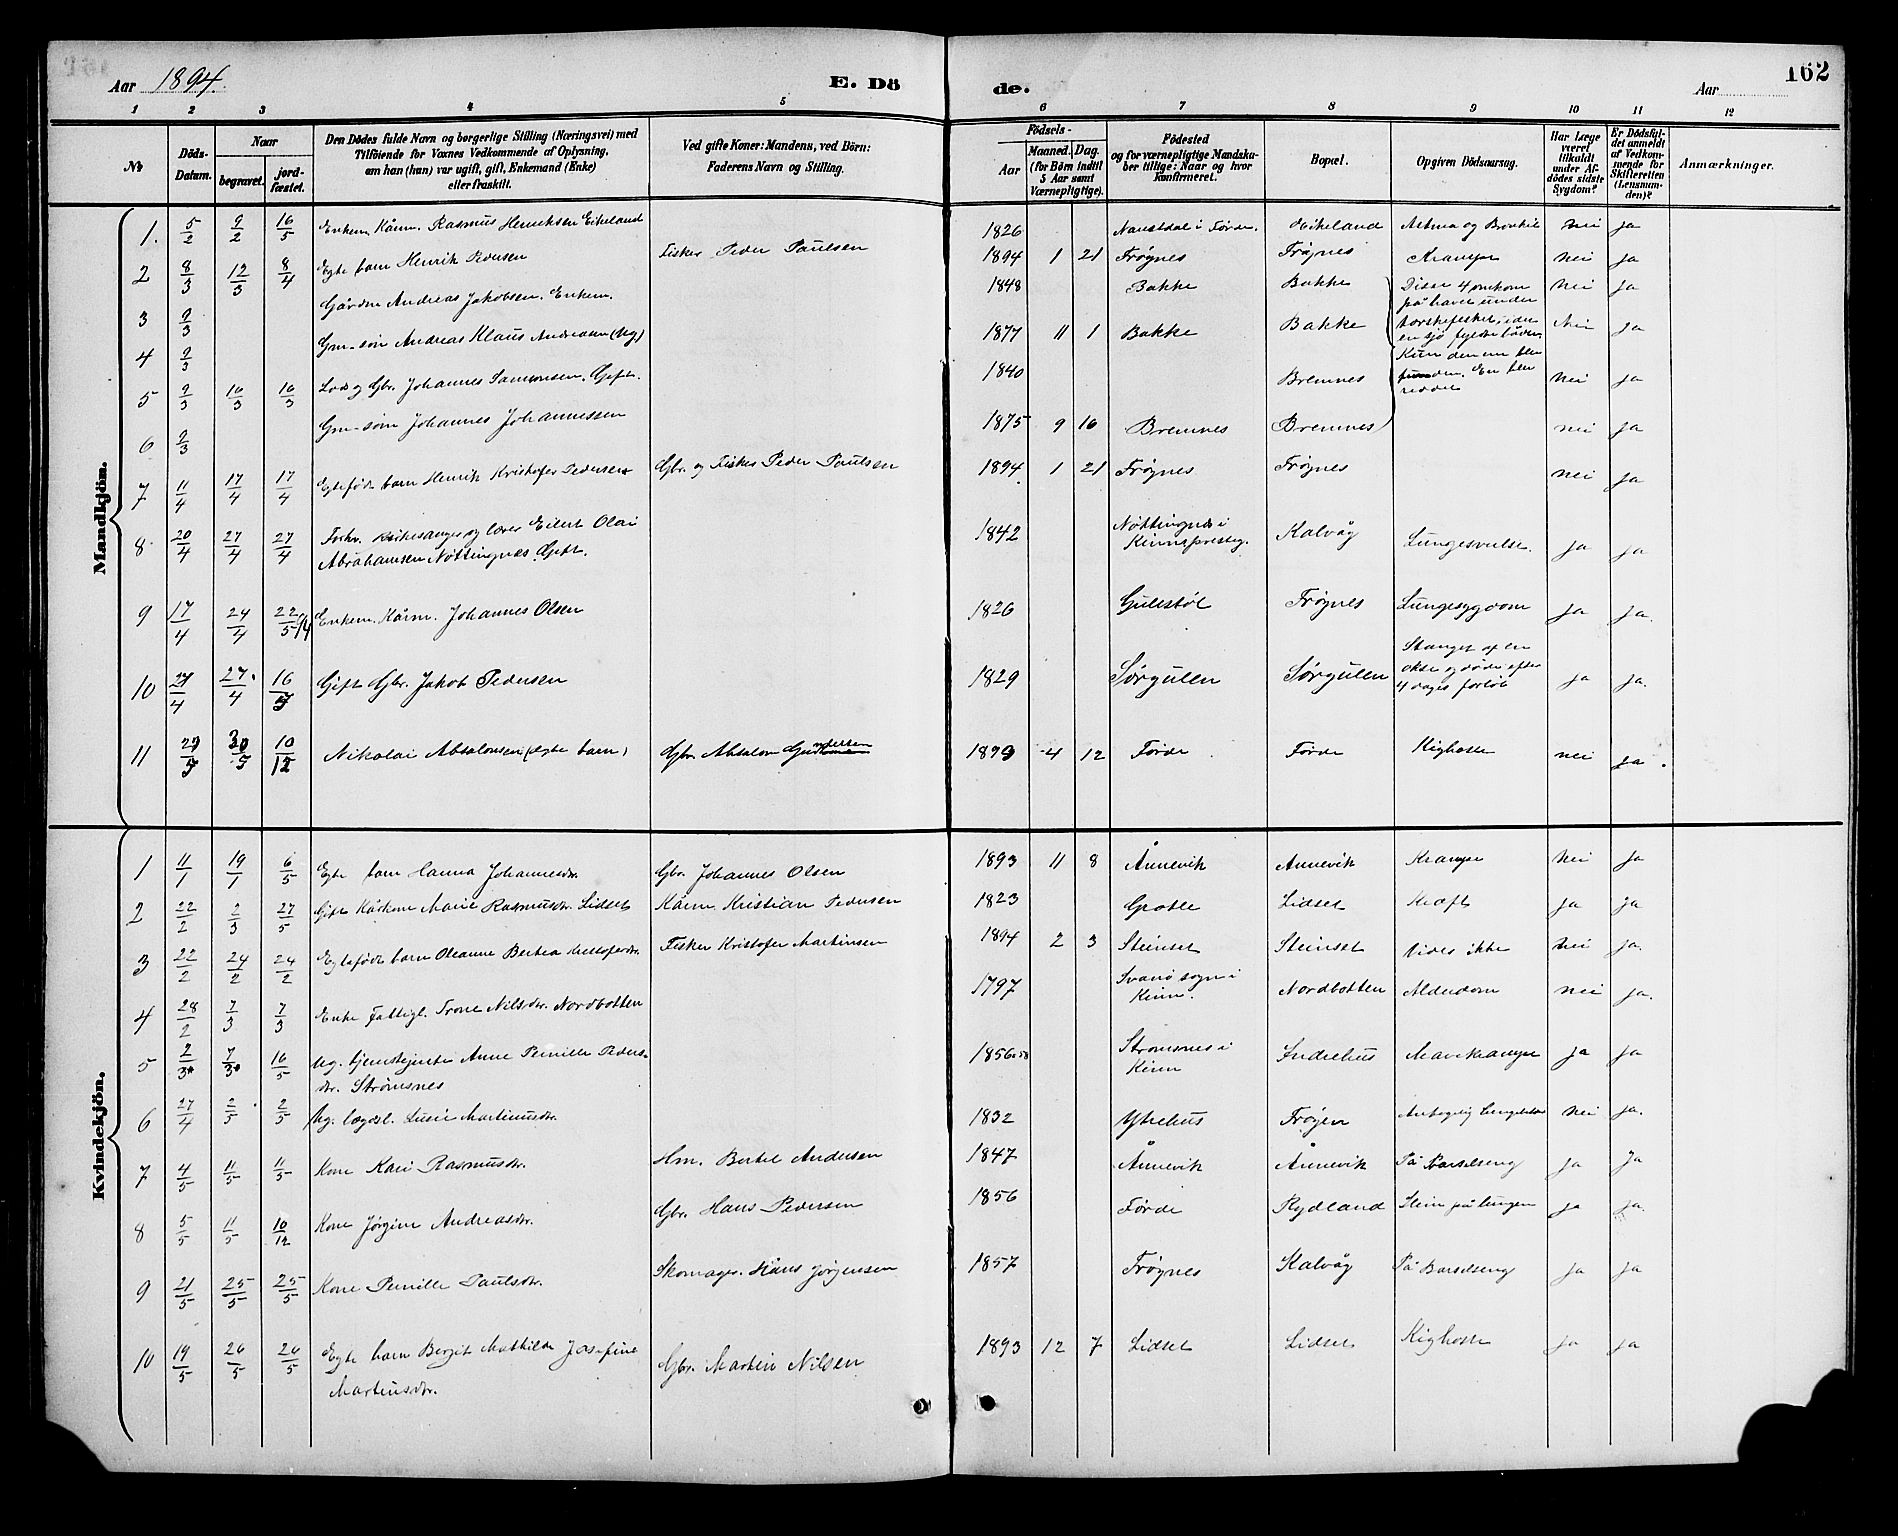 Aar 1894.
E. Dö
de.
Aar
162
1 2 3 4 5 6 7 8 9 10 11 12
№
Döds-Datum.
Naar
begravet.
jord-fæstet.
Den Dödes fulde Navn og borgerlige Stilling (Næringsvei) med
Tilföiende for Voxnes Vedkommende af Oplysning,
om han (hun) var ugift, gift, Enkemand (Enke)
eller fraskilt.
Ved gifte Koner: Mandens, ved Börn:
Faderens Navn og Stilling.
Födsels-
Aar
Maaned. Dag.
(for Börn indtil
5 Aar samt
Værnepligtige).
Födested
og for værnepligtige Mandska-
ber tillige: Naar og hvor
konfirmeret.
Bopæl.
Opgiven Dödsaarsag.
Har Læge
været
tilkaldt
under Af-
dödes sidste
Sygdom?
Er Dödsfal-
det anmeldt
af Vedkom-
mende for
Skifteretten
(Lensman-
den)?
Anmærkninger.
Mandkjön.
1. 5/2 9/2 16/5 Enkem. Kårm. Rasmus Henriksen Eikeland 1826 Naustdal i Førde. Eikeland Astma og nei ja
2 8/3 12/3 8/4 Egte barn Henrik Pedersen Fisker Peder Paulsen 1894 1 21 Frøynes Frøynes Krampe nei ja
3 2/3 Gårdm Andreas Jakobsen. Enkem. 1848 Bakke Bakke Disse 4 omkom på havet under torskefisket, idet en sjø fyldte båden. Kun den ene blev funden. En blev reddet nei ja
4 2/3 Gm-søn Andreas Klaus Andreasen (Ug.) 1877 11 1 Bakke Bakke Nei ja
5 2/3 16/3 16/3 Lods og Gbr. Johannes Samsonsen. Gift. 1840 Bremnes nei ja
6 2/3 Gm-søn Johannes Johannessen 1875 9 16 Bremnes Bremnes nei ja
7 11/4 17/4 17/4 Egtefødt barn Henrik Kristofer Pedersen Gbr. og Fisker Peder Paulsen 1894 1 21 Frøynes Frøynes nei ja
8 20/4 27/4 27/4 Forhv. kirkesanger og lærer Eilert Olai
Abrahamsen Nøttingnes Gift. 1842 Nøttingnes i Kinns prestg. Kalvåg Lungesvulst. ja ja
9 17/4 24/4 22/5 94 Enkem. Kårm. Johannes Olsen 1826 Gulestøl Frøynes Lungesygdom ja ja.
10 27/4 16/5 Gift Gbr. Jakob Pedersen 1829 Sørgulen Sørgulen Stanget af en okse og døde efter 4 dages forløb ja ja.
11 30/5 10/12 Nikolai Absalonsen (egte barn) Gbr. Absalon 4 12 Førde Førde Kighoste nei ja.
Kvindekjön.
1 11/1 19/1 6/5 Egte barn Hanna Johannesdtr. Gbr. Johannes Olsen 1893 11 8 Ånnevik Annevik Krampe Nei ja
2 22/2 2/3 27/5 Gift Kårkone Marie Rasmusdtr. Lidset Kårm. Kristian Pedersen 1823 Grotle Lidset Kræft ja ja
3 22/2 24/2 24/2 Egtefødt barn Oleanne Bertea Kristofersdtr. Fisker Kristofer Martinsen 1894 2 3 Steinset Steinset Vides ikke Nei ja.
4 28/2 7/3 7/3 Enke Fattigl. Trone Nilsdtr. Nordbotten 1797 Svanø sogn i Kinn. Nordbotten Alderdom nei ja.
5 2/3 7/3 16/5 Ug. tjenestejente Anne Pernille Peders-
dtr. Strømsnes 1856 Strømsnes i Kinn Indrehus Mavekrampe ja ja
6 27/4 2/5 2/5 Ug. lægdsl. Lusie Martinusdtr. 1832 Ytrehus Frøyen nei ja.
7 4/5 11/5 11/5 Kone Kari Rasmusdtr. Hm. Bertel Andersen 1847 Ånnevik Ånnevik På Barselseng ja ja
8 5/5 11/5 10/12 Kone Jørgine Andreasdtr. Gbr. Hans Pedersen 1856 Førde Rydland på lungen ja ja.
9 21/5 25/5 25/5 Kone Pernille Paulsdtr. Skomager. Hans Jørgensen 1857 Frøynes Kalvåg På Barselseng ja ja
10 19/5 26/5 26/5 Egte barn Bergit Mathilde Josefine
Martinsdtr. Gbr. Martin Nilsen 1893 12 7 Lidset Lidset Kighoste ja ja